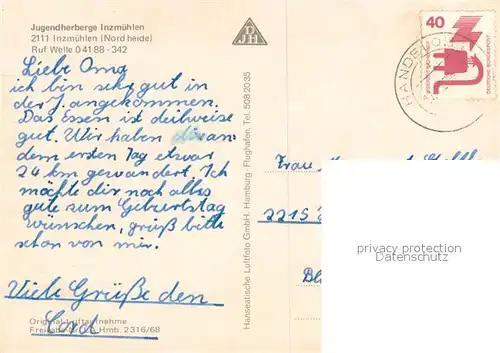 Jugendherberge Inzmühlen
2111 Inzmühlen (Nordheide)
Ruf Welle 0 41 88 - 342
Liebe Oma
ich bin sehr gut in
der J. angekommen.
Das Essen ist teilweise
gut. Wir haben
dem ersten Tag etwar
24 km gewandert. Ich
möchte dir noch alles
gute zum Geburtstag
wünschen, grüß bitte
schon von mir.
Viele Grüße den
Original-Luftaufnahme
Freigabe Hmb. 2316/68
Hanseatische Luftfoto GmbH. Hamburg - Flughafen. Tel. 508 20 35
DJH
40
HANDE
Frau
2215
privacy protection